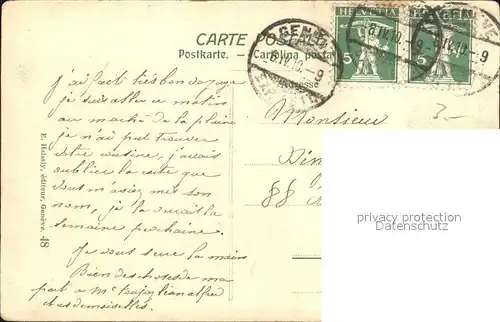 CARTE POSTALE
Postkarte. — Cartolina posta
HELVETIA
5
5
GENÈVE
8.IV.10. - 9
Adresse
3-
j'ai fait très bon voyage
je suis allée ce matin
au marché de la plaine
je n'ai put trouver
votre cousine, j'avais
oublier la carte que
vous m'aviez mis son
nom, je la verrai la
semaine prochaine.
Je vous serre la main
Bien des choses de ma
part a Mr
et desmoiselles.
Monsieur
88
E. Haissly, éditeur, Genève. 48
privacy protection
Datenschutz